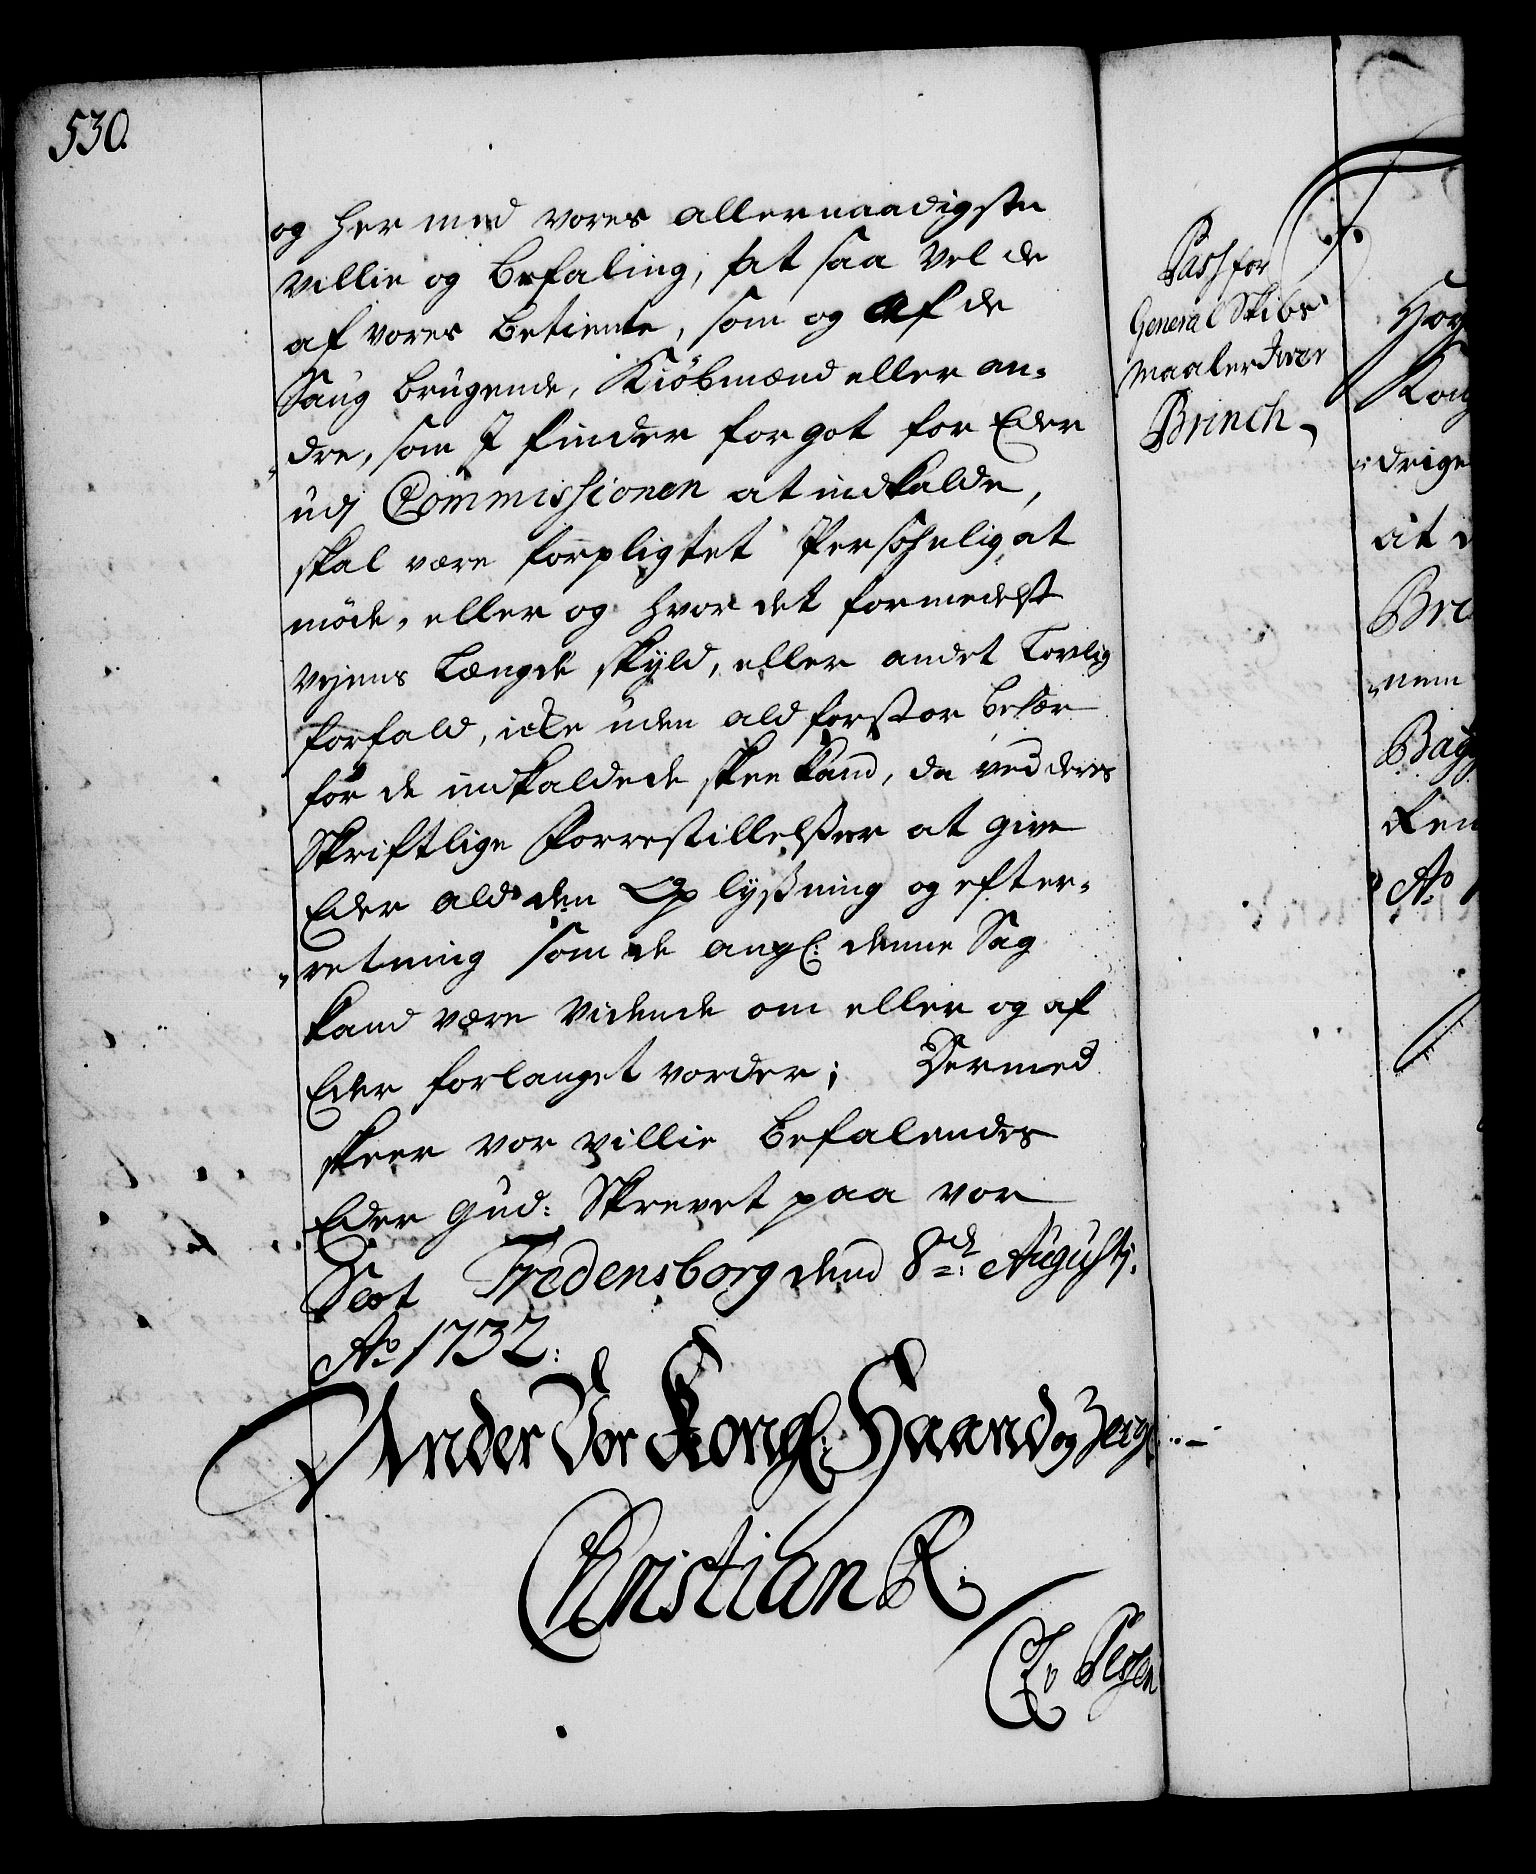 530.
og her med vores allernaadigste
villie og befaling, at saa vel de
af vores betiente, som og af de
Saug brugende, Kiöbmænd eller an-
dre, som I finder for got for Eder
udj Commissionen at indkalde,
skal være forpligtet Persohnlig at
möde, eller og hvor det formedelst
Vejens Længde skyld, eller andet Lovlig
forfald, icke uden ald forstor besær
for de indkaldede skee kand, da ved deres
Skriftlige Forrestillelßer at give
Eder ald den Oplyßning og efter-
retning som de angl: denne Sag
kand være vidende om eller og af
Eder forlanget vorder; Dermed
skeer vor villie befalendes
Eder Gud: Skrevet paa vor
Slot Fredensborg dend 8de: Augustj.
Ao 1732:
Under Vor Kongl: Haand og Zeigl
Christian R.
Pass for
General Skibs
maaler Iver
Brinch
drige
at
Bre
nem
Ao